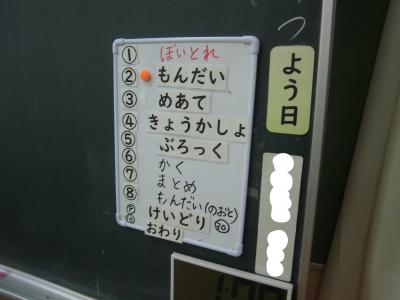 ① ぼいとれ
② もんだい
③ めあて
④ きょうかしょ
⑤ ぶろっく
⑥ かく
⑦ まとめ
⑧ もんだい(のおと)
けいどり
おわり
よう日